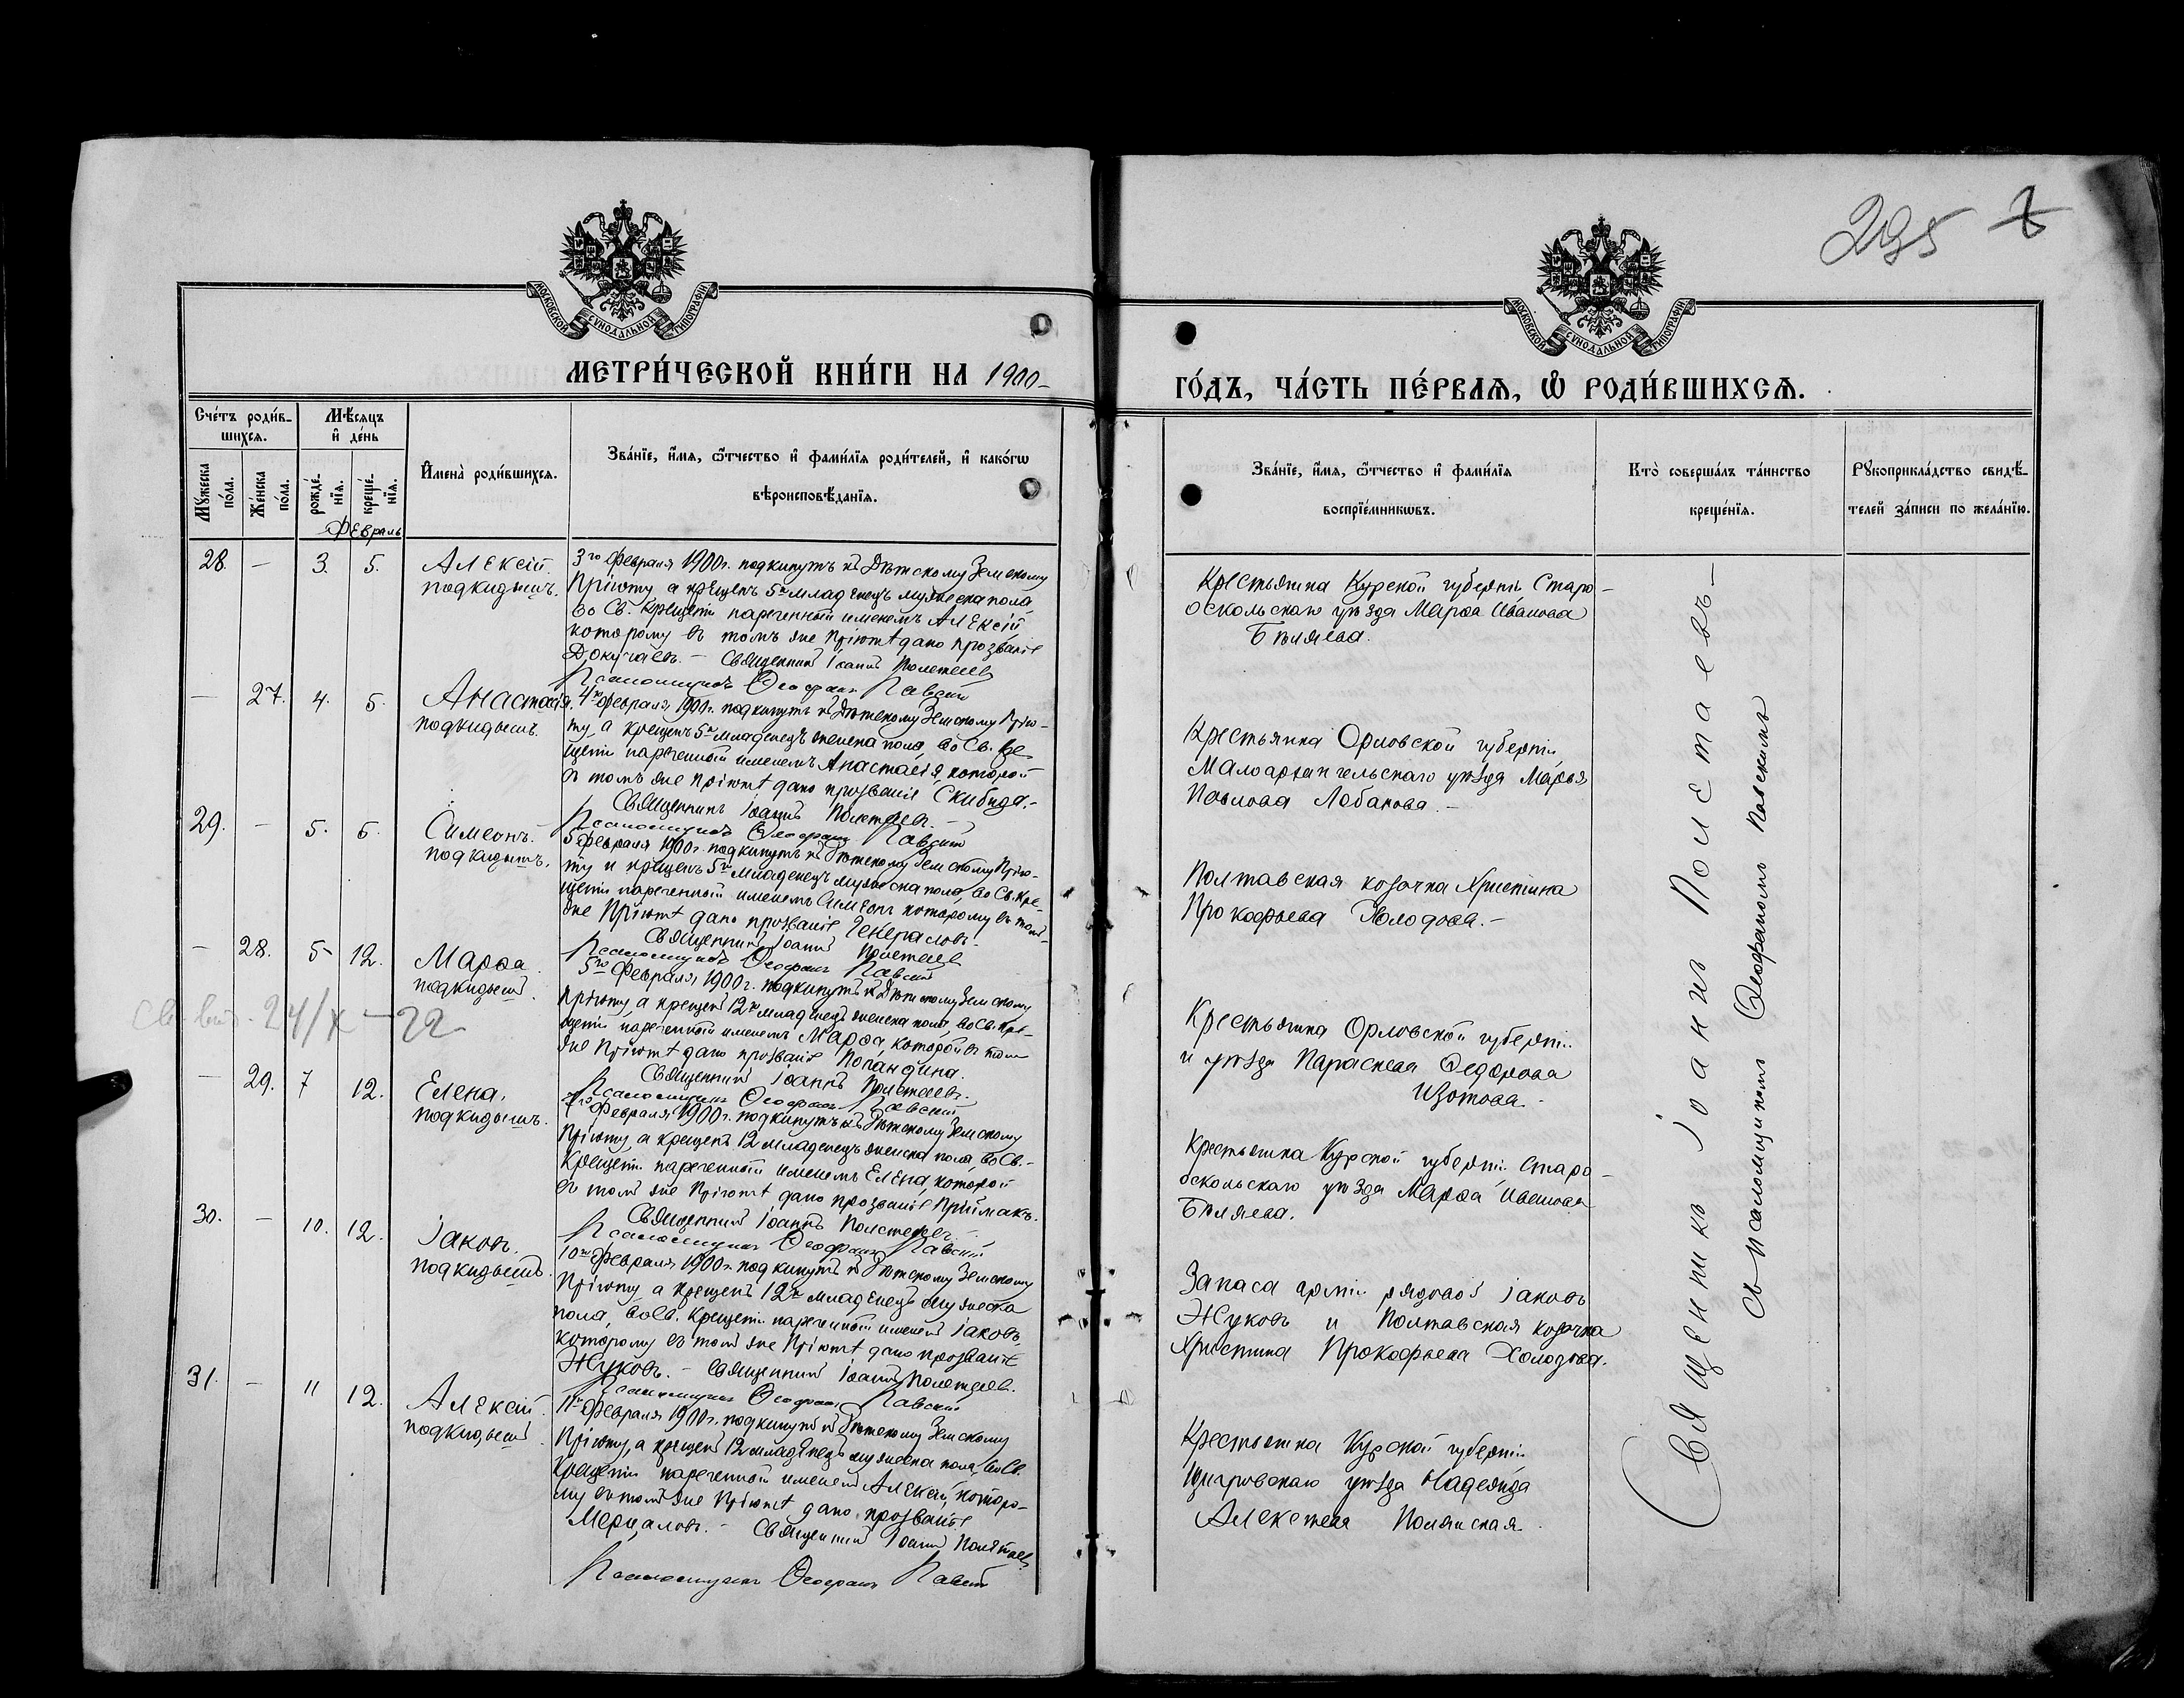 295
МОСКОВСКОЙ СѴНОДАЛЬНОЙ ТИПОГРАФІИ
МОСКОВСКОЙ СѴНОДАЛЬНОЙ ТИПОГРАФІИ
МЕТРИ́ЧЕСКОЙ КНИ́ГИ НА 1900
ГО́ДЪ, ЧА́СТЬ ПЕ́РВАѦ, Ѡ҆ РОДИ́ВШИХСѦ.
Сче́тъ роди́в-
шихсѧ.
Мѣ́сѧцъ
и҆ де́нь
Мꙋ́жеска
по́ла.
Же́нска
по́ла.
рожде́-
нїѧ.
креще́-
нїѧ.
Февраль
И҆мена̀ роди́вшихсѧ.
Зва́нїе, и҆́мѧ, ѻ҆́тчество и҆ фами́лїѧ роди́телей, и҆ како́гѡ
вѣроисповѣ́данїѧ.
Зва́нїе, и҆́мѧ, ѻ҆́тчество и҆ фами́лїѧ
воспрїе́мникѡвъ.
Кто̀ соверша́лъ та́инство
креще́нїѧ.
Рꙋкоприкла́дство свидѣ́-
телей за́писи по жела́нїю.
28. — 3. 5. Алексій
подкидышъ.
3го февраля 1900г. подкинутъ къ Дѣтскому Земскому
Пріюту а крещенъ 5го младенецъ мужеска пола,
во Св. Крещеніи нареченный именемъ Алексій
которому въ томъ же Пріютѣ дано прозваніе
Докучаевъ. — Священникъ Іоаннъ Полетаевъ
Псаломщикъ Ѳеофанъ Павскій
Крестьянка Курской губерніи Старо-
оскольскаго уѣзда Марѳа Иванова
Бѣляева.
— 27. 4. 5. Анастасія.
подкидышъ.
4го февраля 1900г. подкинутъ къ Дѣтскому Земскому Прію-
ту, а крещенъ 5го младенецъ женска пола, во Св. Кре-
щеніи нареченный именемъ Анастасія, которой
въ томъ же Пріютѣ дано прозваніе Скибида.—
Священникъ Іоаннъ Полетаевъ.—
Псаломщикъ Ѳеофанъ Павскій
Крестьянка Орловской губерніи
Малоархангельскаго уѣзда Марья
Павлова Лобанова.—
29. — 5. 6. Симеонъ.
подкидышъ.
5 февраля 1900г. подкинутъ къ Дѣтскому Земскому Прію-
ту и крещенъ 5го младенецъ мужеска пола, во Св. Кре-
щеніи нареченный именемъ Симеонъ которому въ томъ-
же Пріютѣ дано прозваніе Генераловъ.
Священникъ Іоаннъ Полетаевъ
Псаломщикъ Ѳеофанъ Павскій
Полтавская козачка Христина
Прокофьева Холодова.—
— 28. 5 12. Марѳа.
подкидышъ.
5го февраля 1900г. подкинутъ къ Дѣтскому Земскому
Пріюту, а крещенъ 12го младенецъ женска пола, во Св. Кре-
щеніи нареченный именемъ Марѳа, которой въ томъ
же Пріютѣ дано прозваніе
Священникъ Іоаннъ Полетаевъ.
Псаломщикъ Ѳеофанъ Павскій
24/X — 22
Крестьянка Орловской губерніи
и уѣзда Параскева Ѳедорова
Изотова.
— 29. 7 12. Елена.
подкидышъ.
7го февраля 1900г. подкинутъ къ Дѣтскому Земскому
Пріюту, а крещенъ 12 младенецъ женска пола, во Св.
Крещеніи нареченный именемъ Елена, которой
въ томъ же Пріютѣ дано прозваніе Приймакъ.
Священникъ Іоаннъ Полетаевъ.
Псаломщикъ Ѳеофанъ Павскій
Крестьянка Курской губерніи Старо-
оскольскаго уѣзда Марѳа Иванова
Бѣляева.
30. — 10. 12. Іаковъ.
подкидышъ.
10го февраля 1900г. подкинутъ къ Дѣтскому Земскому
Пріюту а крещенъ 12го младенецъ мужеска
пола, во Св. Крещеніи нареченный именемъ Іаковъ,
которому въ томъ же Пріютѣ дано прозваніе
Жуковъ. — Священникъ Іоаннъ Полетаевъ.
Псаломщикъ Ѳеофанъ Павскій
Запаса арміи рядовой Іаковъ
Жуковъ и Полтавская козачка
Христина Прокофьева Холодова.
31. — 11 12. Алексій.
подкидышъ.
11го февраля 1900г. подкинутъ къ Дѣтскому Земскому
Пріюту, а крещенъ 12 младенецъ мужеска пола, во Св.
Крещеніи нареченный именемъ Алексій, которо-
му въ томъ же Пріютѣ дано прозваніе
Мерцаловъ. — Священникъ Іоаннъ Полетаевъ
Псаломщикъ Ѳеофанъ Павскій
Крестьянка Курской губерніи
Щигровскаго уѣзда Надежда
Алексѣева Полянская.
Священникъ Іоаннъ Полетаевъ—
съ псаломщикомъ Ѳеофаномъ Павскимъ